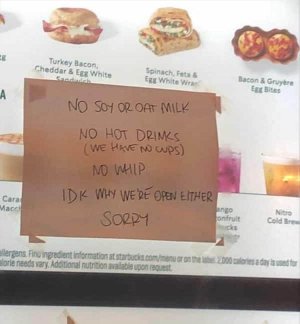 Turkey Bacon,
Cheddar & Egg White
Sandwich
Spinach, Feta &
Egg White Wrap
Bacon & Gruyère
Egg Bites
NO SOY OR OAT MILK
NO HOT DRINKS
(WE HAVE NO CUPS)
NO WHIP
IDK WHY WE'RE OPEN EITHER
SORRY
Nitro
Cold Brew
allergens. Find ingredient information at starbucks.com/menu or on the label. 2,000 calories a day is used for
calorie needs vary. Additional nutrition available upon request.